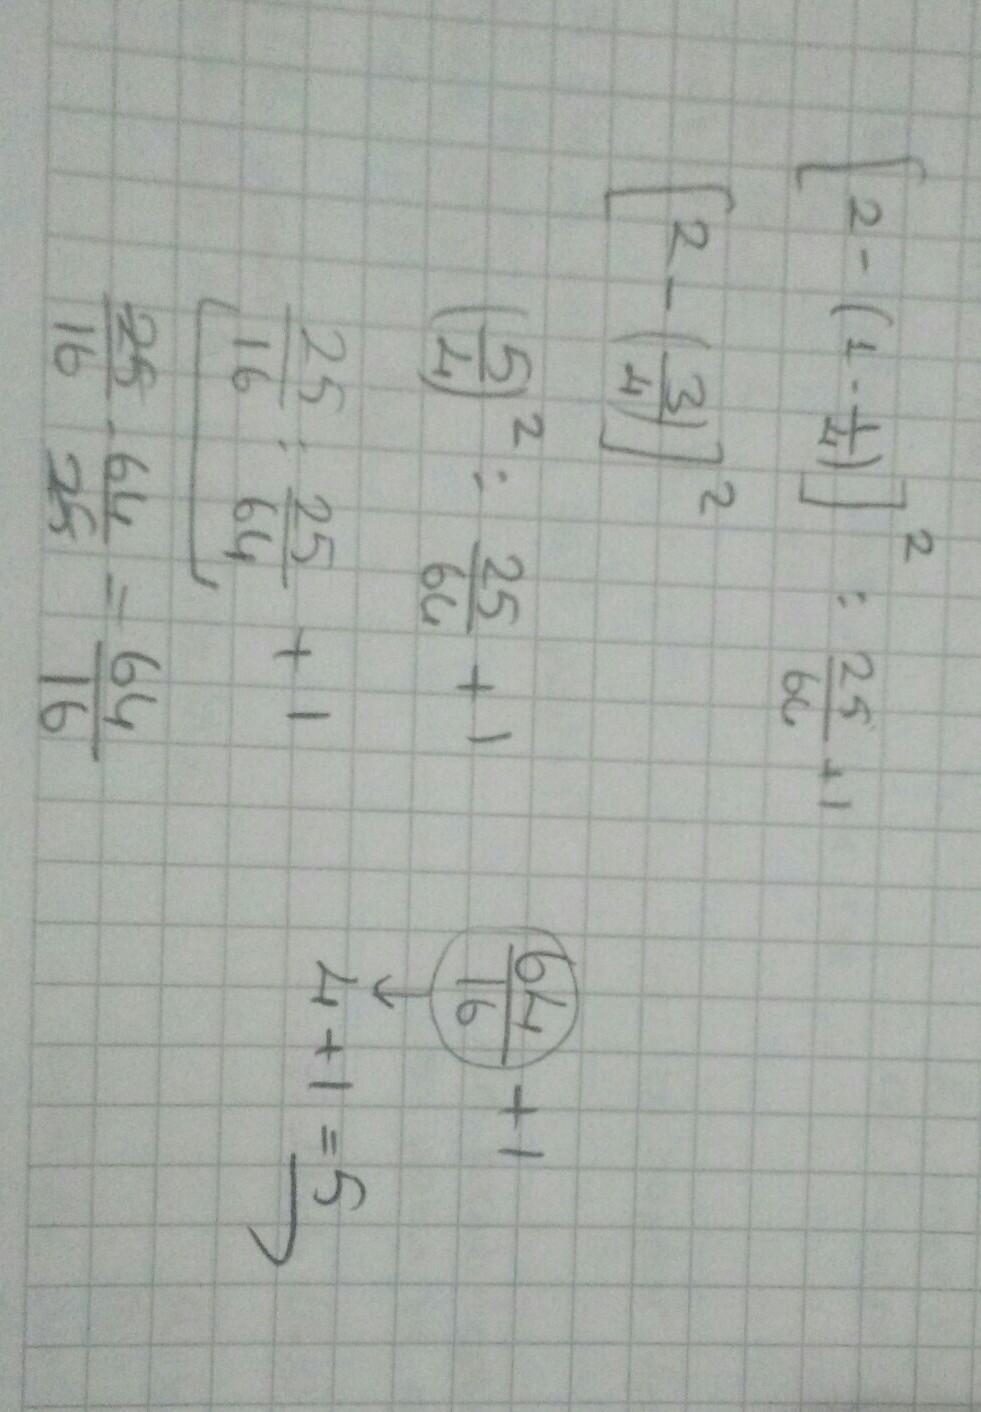 [2 - (1 - 1/4)]² : 25/64 + 1
[2 - (3/4)]²
(5/4)² : 25/64 + 1
25/16 : 25/64 + 1
25/16 . 64/25 = 64/16
64/16 + 1
4 + 1 = 5